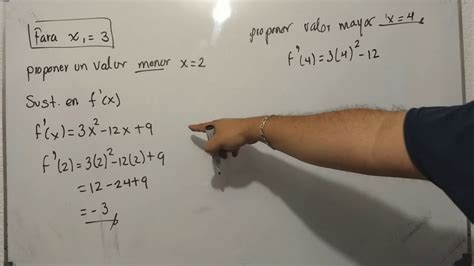 Para x₁ = 3
proponer un valor menor x=2
Sust. en f'(x)
f'(x) = 3x² - 12x + 9
f'(2) = 3(2)² - 12(2) + 9
= 12 - 24 + 9
= -3
proponer valor mayor x=4
f'(4) = 3(4)² - 12